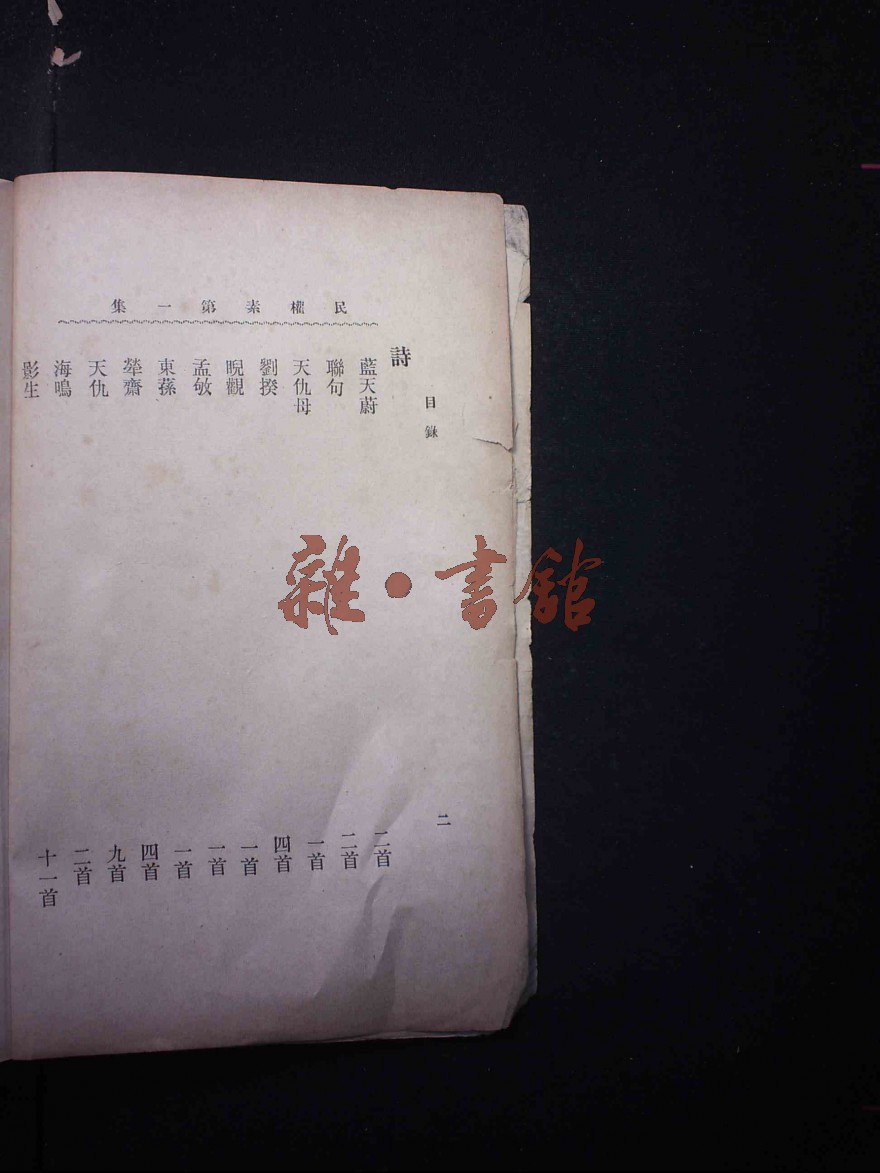 民權素第一集
目錄 二
詩
藍天蔚 二首
聯句 二首
天仇母 一首
劉揆 四首
睨觀 一首
孟敏 一首
東蓀 一首
犖齋 四首
天仇 九首
海鳴 二首
影生 十一首
雜·書館